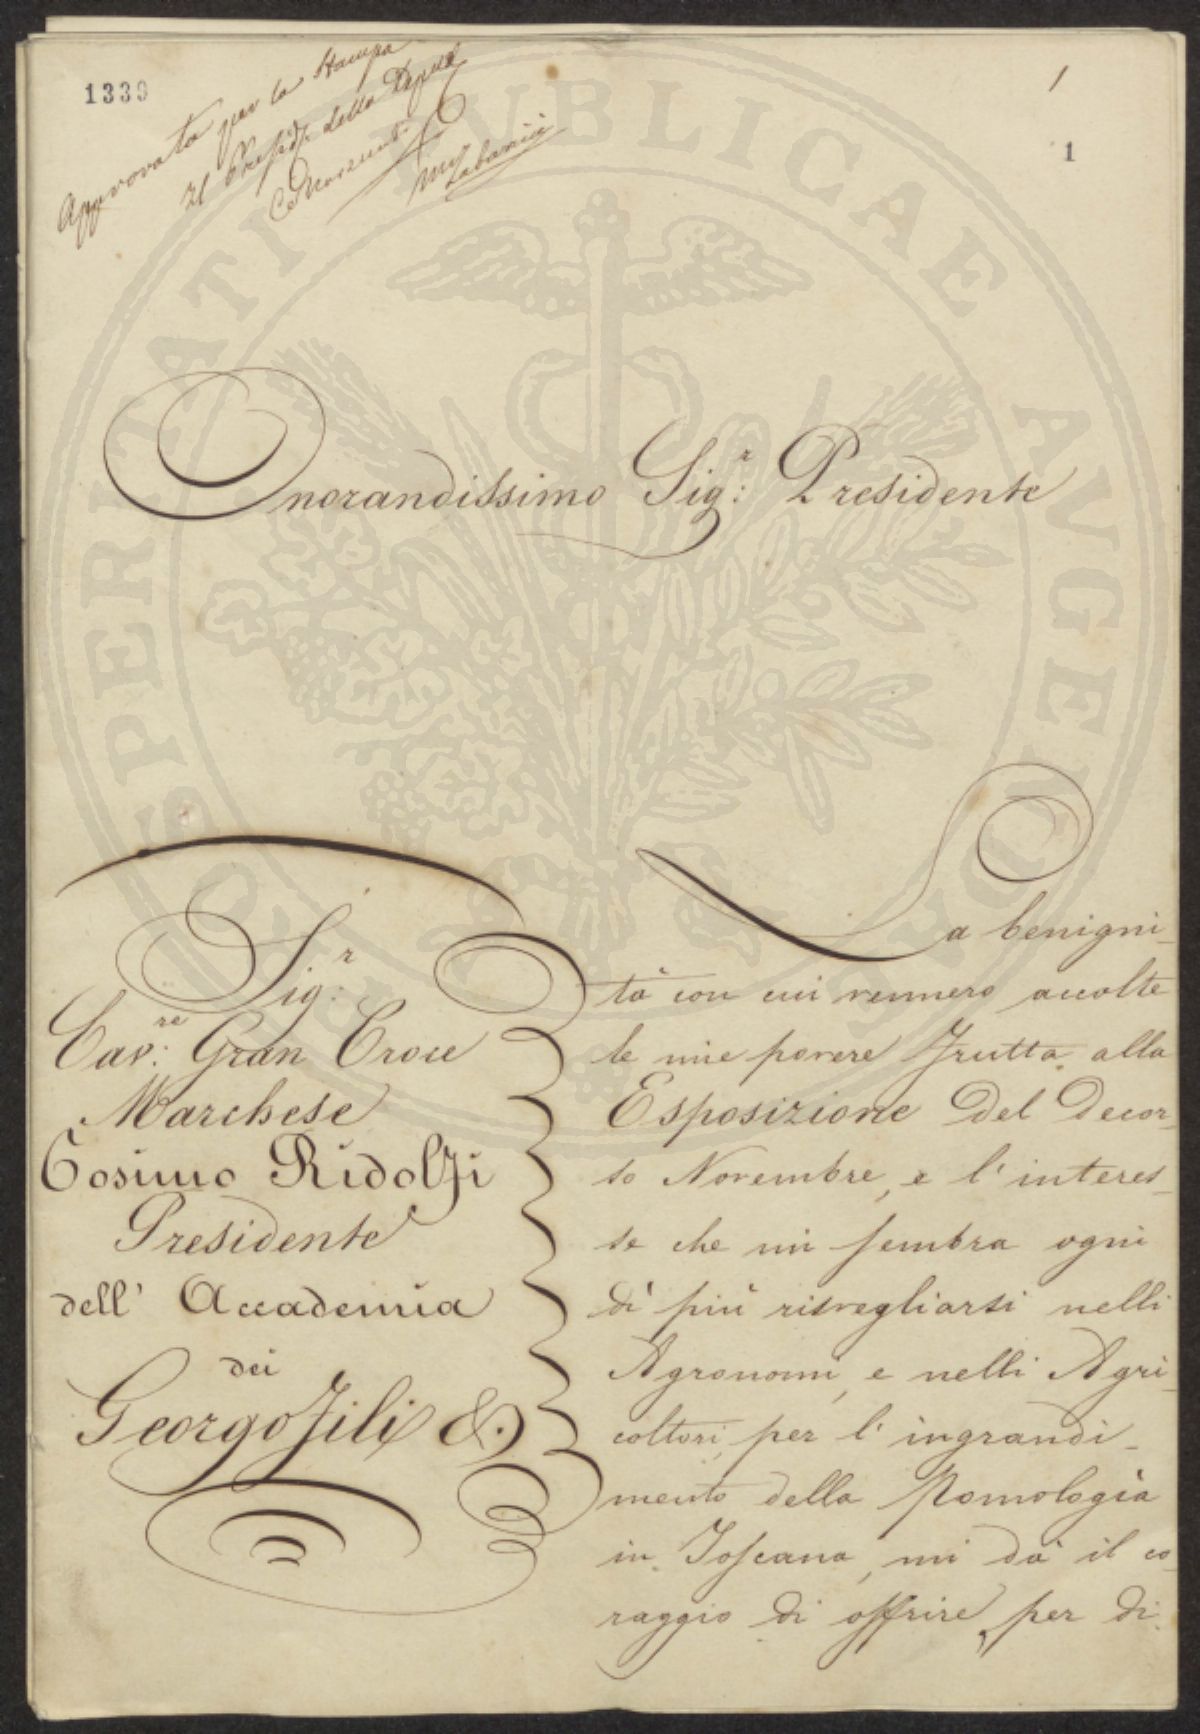 1339
1
1
Approvata per la Stampa
Il Presid.e della Deput.e
PROSPERITATI PUBLICAE AVGENDAE
Onorandissimo Sig:r Presidente
Sig:r
Cav:re Gran Croce
Marchese
Cosimo Ridolfi
Presidente
dell' Accademia
dei
Georgofili &.
La benigni-
tà con cui vennero accolte
le mie povere frutta alla
Esposizione del Decor-
so Novembre, e l'interes-
se che mi sembra ogni
dì più risvegliarsi nelli
Agronomi, e nelli Agri-
coltori, per l'ingrandi-
mento della Pomologia
in Toscana, mi dà il co-
raggio di offrire, per di-